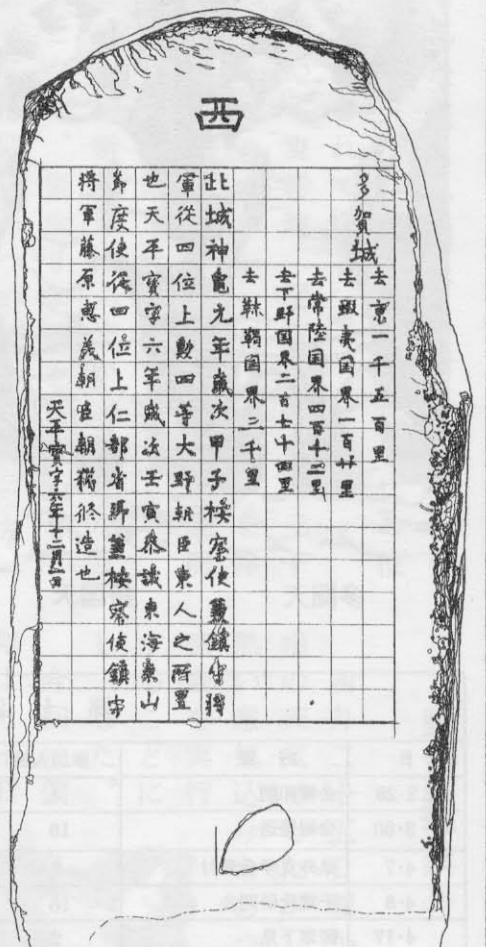 西
多賀城
去京一千五百里
去蝦夷国界一百廿里
去常陸国界四百十二里
去下野国界二百七十四里
去靺鞨国界三千里
此城神龜元年歳次甲子按察使兼鎮守將
軍從四位上勲四等大野朝臣東人之所置
也天平寳字六年歳次壬寅参議東海東山
節度使從四位上仁部省卿兼按察使鎮守
將軍藤原惠美朝臣朝獦修造也
天平寳字六年十二月一日